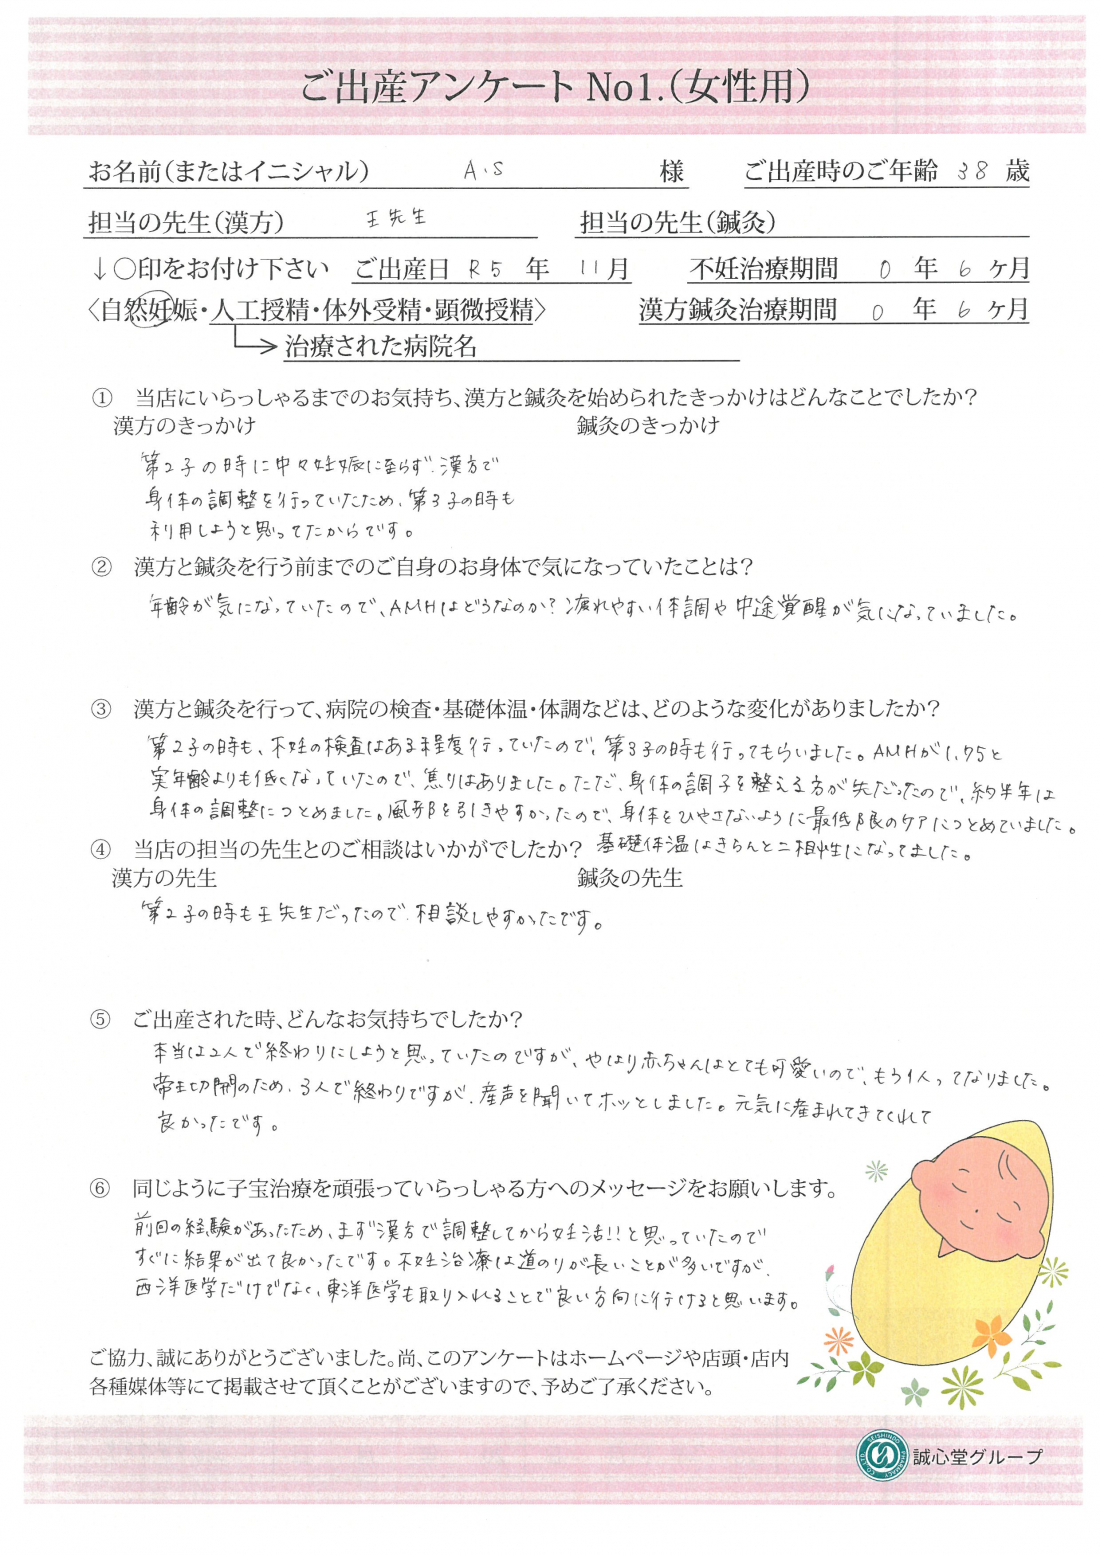 ご出産アンケート No1.(女性用)
お名前(またはイニシャル) A.S 様 ご出産時のご年齢 38 歳
担当の先生(漢方) 王先生 担当の先生(鍼灸)
↓○印をお付け下さい ご出産日 R5 年 11月 不妊治療期間 0 年 6 ヶ月
〈自然妊娠・人工授精・体外受精・顕微授精〉 漢方鍼灸治療期間 0 年 6 ヶ月
治療された病院名
① 当店にいらっしゃるまでのお気持ち、漢方と鍼灸を始められたきっかけはどんなことでしたか?
漢方のきっかけ 鍼灸のきっかけ
第2子の時に中々妊娠に至らず、漢方で
身体の調整を行っていたため、第3子の時も
利用しようと思ってたからです。
② 漢方と鍼灸を行う前までのご自身のお身体で気になっていたことは?
年齢が気になっていたので、AMHはどうなのか?疲れやすい体調や中途覚醒が気になっていました。
③ 漢方と鍼灸を行って、病院の検査・基礎体温・体調などは、どのような変化がありましたか?
第2子の時も、不妊の検査はある程度行っていたので、第3子の時も行ってもらいました。AMHが1.75と
実年齢よりも低くなっていたので、焦りはありました。ただ、身体の調子を整える方が先だったので、約半年は
身体の調整につとめました。風邪を引きやすかったので、身体をひやさないように最低限のケアにつとめていました。
基礎体温はきちんと二相性になってました。
④ 当店の担当の先生とのご相談はいかがでしたか?
漢方の先生 鍼灸の先生
第2子の時も王先生だったので、相談しやすかたです。
⑤ ご出産された時、どんなお気持ちでしたか?
本当は2人で終わりにしようと思っていたのですが、やはり赤ちゃんはとても可愛いので、もう1人ってなりました。
帝王切開のため、3人で終わりですが、産声を聞いてホッとしました。元気に産まれてきてくれて
良かったです。
⑥ 同じように子宝治療を頑張っていらっしゃる方へのメッセージをお願いします。
前回の経験があったため、まず漢方で調整してから妊活!!と思っていたので
すぐに結果が出て良かったです。不妊治療は道のりが長いことが多いですが、
西洋医学だけでなく、東洋医学も取り入れることで良い方向に行けると思います。
ご協力、誠にありがとうございました。尚、このアンケートはホームページや店頭・店内
各種媒体等にて掲載させて頂くことがございますので、予めご了承ください。
SEISHINDO PHARMACY CO.,LTD.
誠心堂グループ